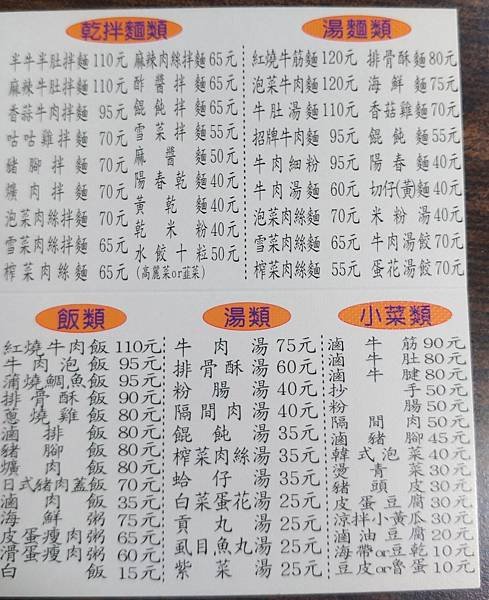 乾拌麵類
半牛半肚拌麵 110元
麻辣牛肚拌麵 110元
香蒜牛肉拌麵 95元
咕咕雞拌麵 70元
豬腳拌麵 70元
爌肉拌麵 70元
泡菜肉絲拌麵 70元
雪菜肉絲拌麵 65元
榨菜肉絲麵 65元
麻辣肉絲拌麵 65元
酢醬拌麵 65元
餛飩拌麵 65元
雪菜拌麵 55元
麻醬麵 50元
陽春乾麵 40元
黃乾麵 40元
乾米粉 40元
水餃十粒 50元
(高麗菜or韮菜)
湯麵類
紅燒牛筋麵 120元
泡菜牛肉麵 120元
牛肚湯麵 110元
招牌牛肉麵 95元
牛肉細粉 95元
牛肉湯麵 60元
泡菜肉絲麵 70元
雪菜肉絲麵 65元
榨菜肉絲麵 55元
排骨酥麵 80元
海鮮麵 75元
香菇雞麵 70元
餛飩麵 55元
陽春麵 40元
切仔(黃)麵 40元
米粉湯 40元
牛肉湯餃 70元
蛋花湯餃 70元
飯類
紅燒牛肉飯 110元
牛肉泡飯 95元
蒲燒鯛魚飯 95元
排骨酥飯 90元
蔥燒雞飯 80元
滷排飯 80元
豬腳飯 80元
爌肉飯 80元
日式豬肉蓋飯 70元
滷肉飯 35元
海鮮粥 75元
皮蛋瘦肉粥 65元
滑蛋瘦肉粥 60元
白飯 15元
湯類
牛肉湯 75元
排骨酥湯 60元
粉腸湯 40元
隔間肉湯 40元
餛飩湯 35元
榨菜肉絲湯 35元
蛤仔湯 35元
白菜蛋花湯 25元
貢丸湯 25元
虱目魚丸湯 25元
紫菜湯 25元
小菜類
滷牛筋 90元
滷牛肚 80元
滷牛腱 80元
抄手 50元
粉腸 50元
隔間肉 50元
滷豬腳 45元
韓式泡菜 40元
燙青菜 30元
豬頭皮 30元
皮蛋豆腐 30元
涼拌小黃瓜 30元
滷油豆腐 20元
海帶or豆乾 10元
豆皮or魯蛋 10元